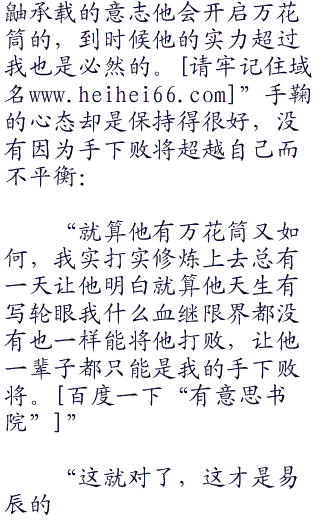 鼬承载的意志他会开启万花
筒的，到时候他的实力超过
我也是必然的。[请牢记住域
名www.heihei66.com]”手鞠
的心态却是保持得很好，没
有因为手下败将超越自己而
不平衡：
“就算他有万花筒又如
何，我实打实修炼上去总有
一天让他明白就算他天生有
写轮眼我什么血继限界都没
有也一样能将他打败，让他
一辈子都只能是我的手下败
将。[百度一下“有意思书
院”]”
“这就对了，这才是易
辰的